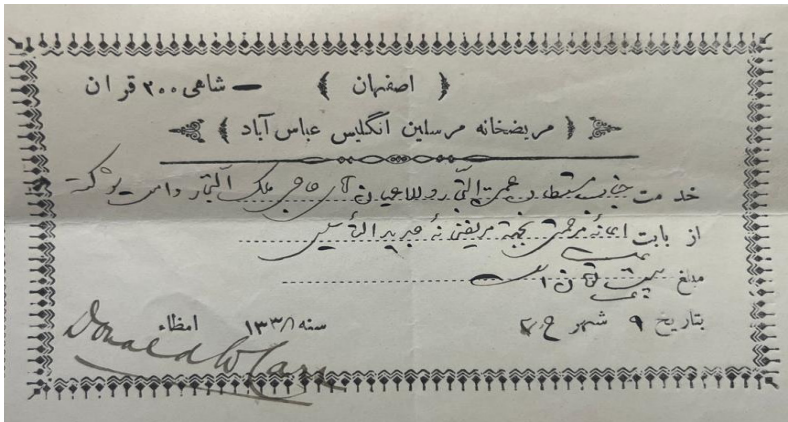 ﴿ اصفهان ﴾ — شاهی ۲۰۰ قران
﴿ مریضخانه مرسلین انگلیس عباس آباد ﴾
خدمت جناب مستطاب عمدة التجار والاعیان آقای حاجی ملک التجار دامت شوکته
از بابت اعانه مرحمتی بجهة مریضخانه جدید التأسیس
مبلغ بیست تومان است
بتاریخ ۹ شهر ج۲
سنه ۱۳۳۸ امظاء
Donald W Carr